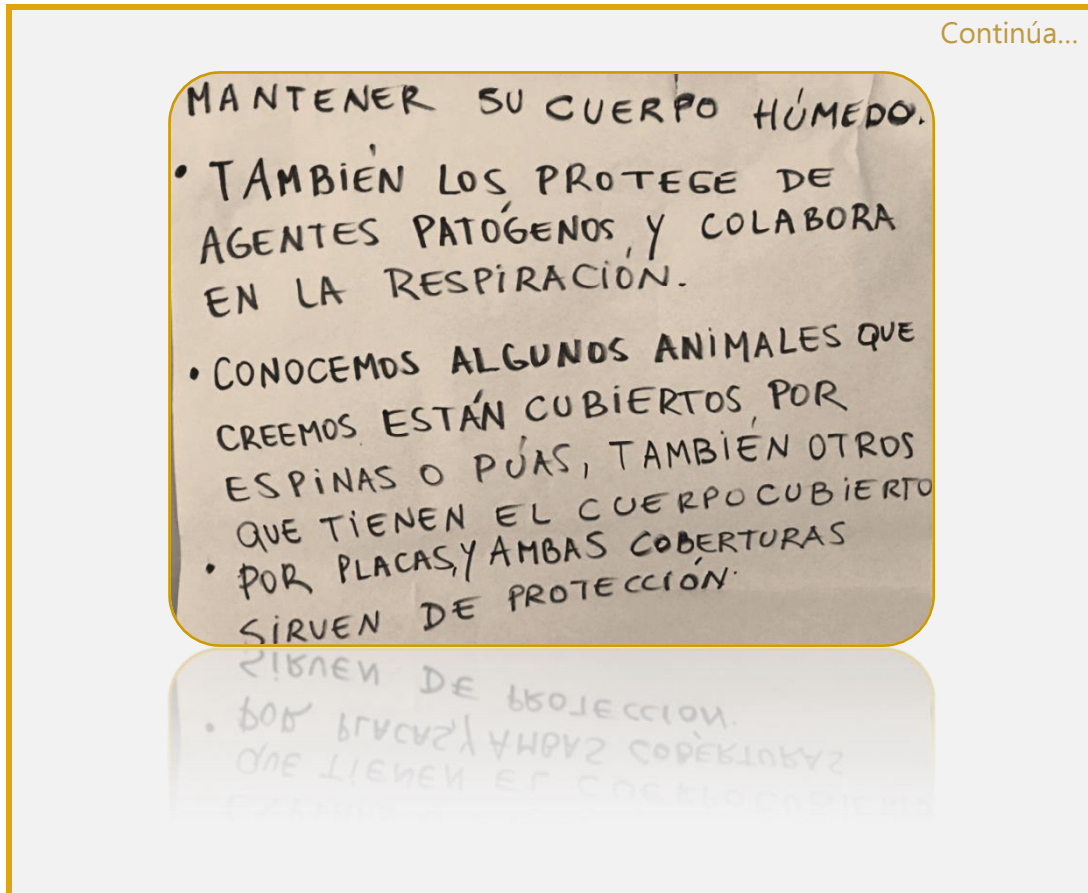 Continúa...
MANTENER SU CUERPO HÚMEDO.
• TAMBIÉN LOS PROTEGE DE
AGENTES PATÓGENOS, Y COLABORA
EN LA RESPIRACIÓN.
• CONOCEMOS ALGUNOS ANIMALES QUE
CREEMOS ESTÁN CUBIERTOS POR
ESPINAS O PÚAS, TAMBIÉN OTROS
QUE TIENEN EL CUERPO CUBIERTO
• POR PLACAS, Y AMBAS COBERTURAS
SIRVEN DE PROTECCIÓN.